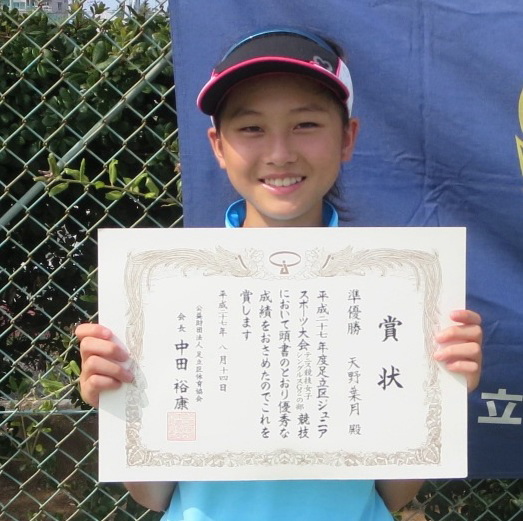 賞状
準優勝 天野菜月 殿
平成二十七年度足立区ジュニア
スポーツ大会 競技
において頭書のとおり優秀な
成績をおさめたのでこれを
賞します
平成二十七年 八月十四日
公益財団法人足立区体育協会
会長 中田裕康
立